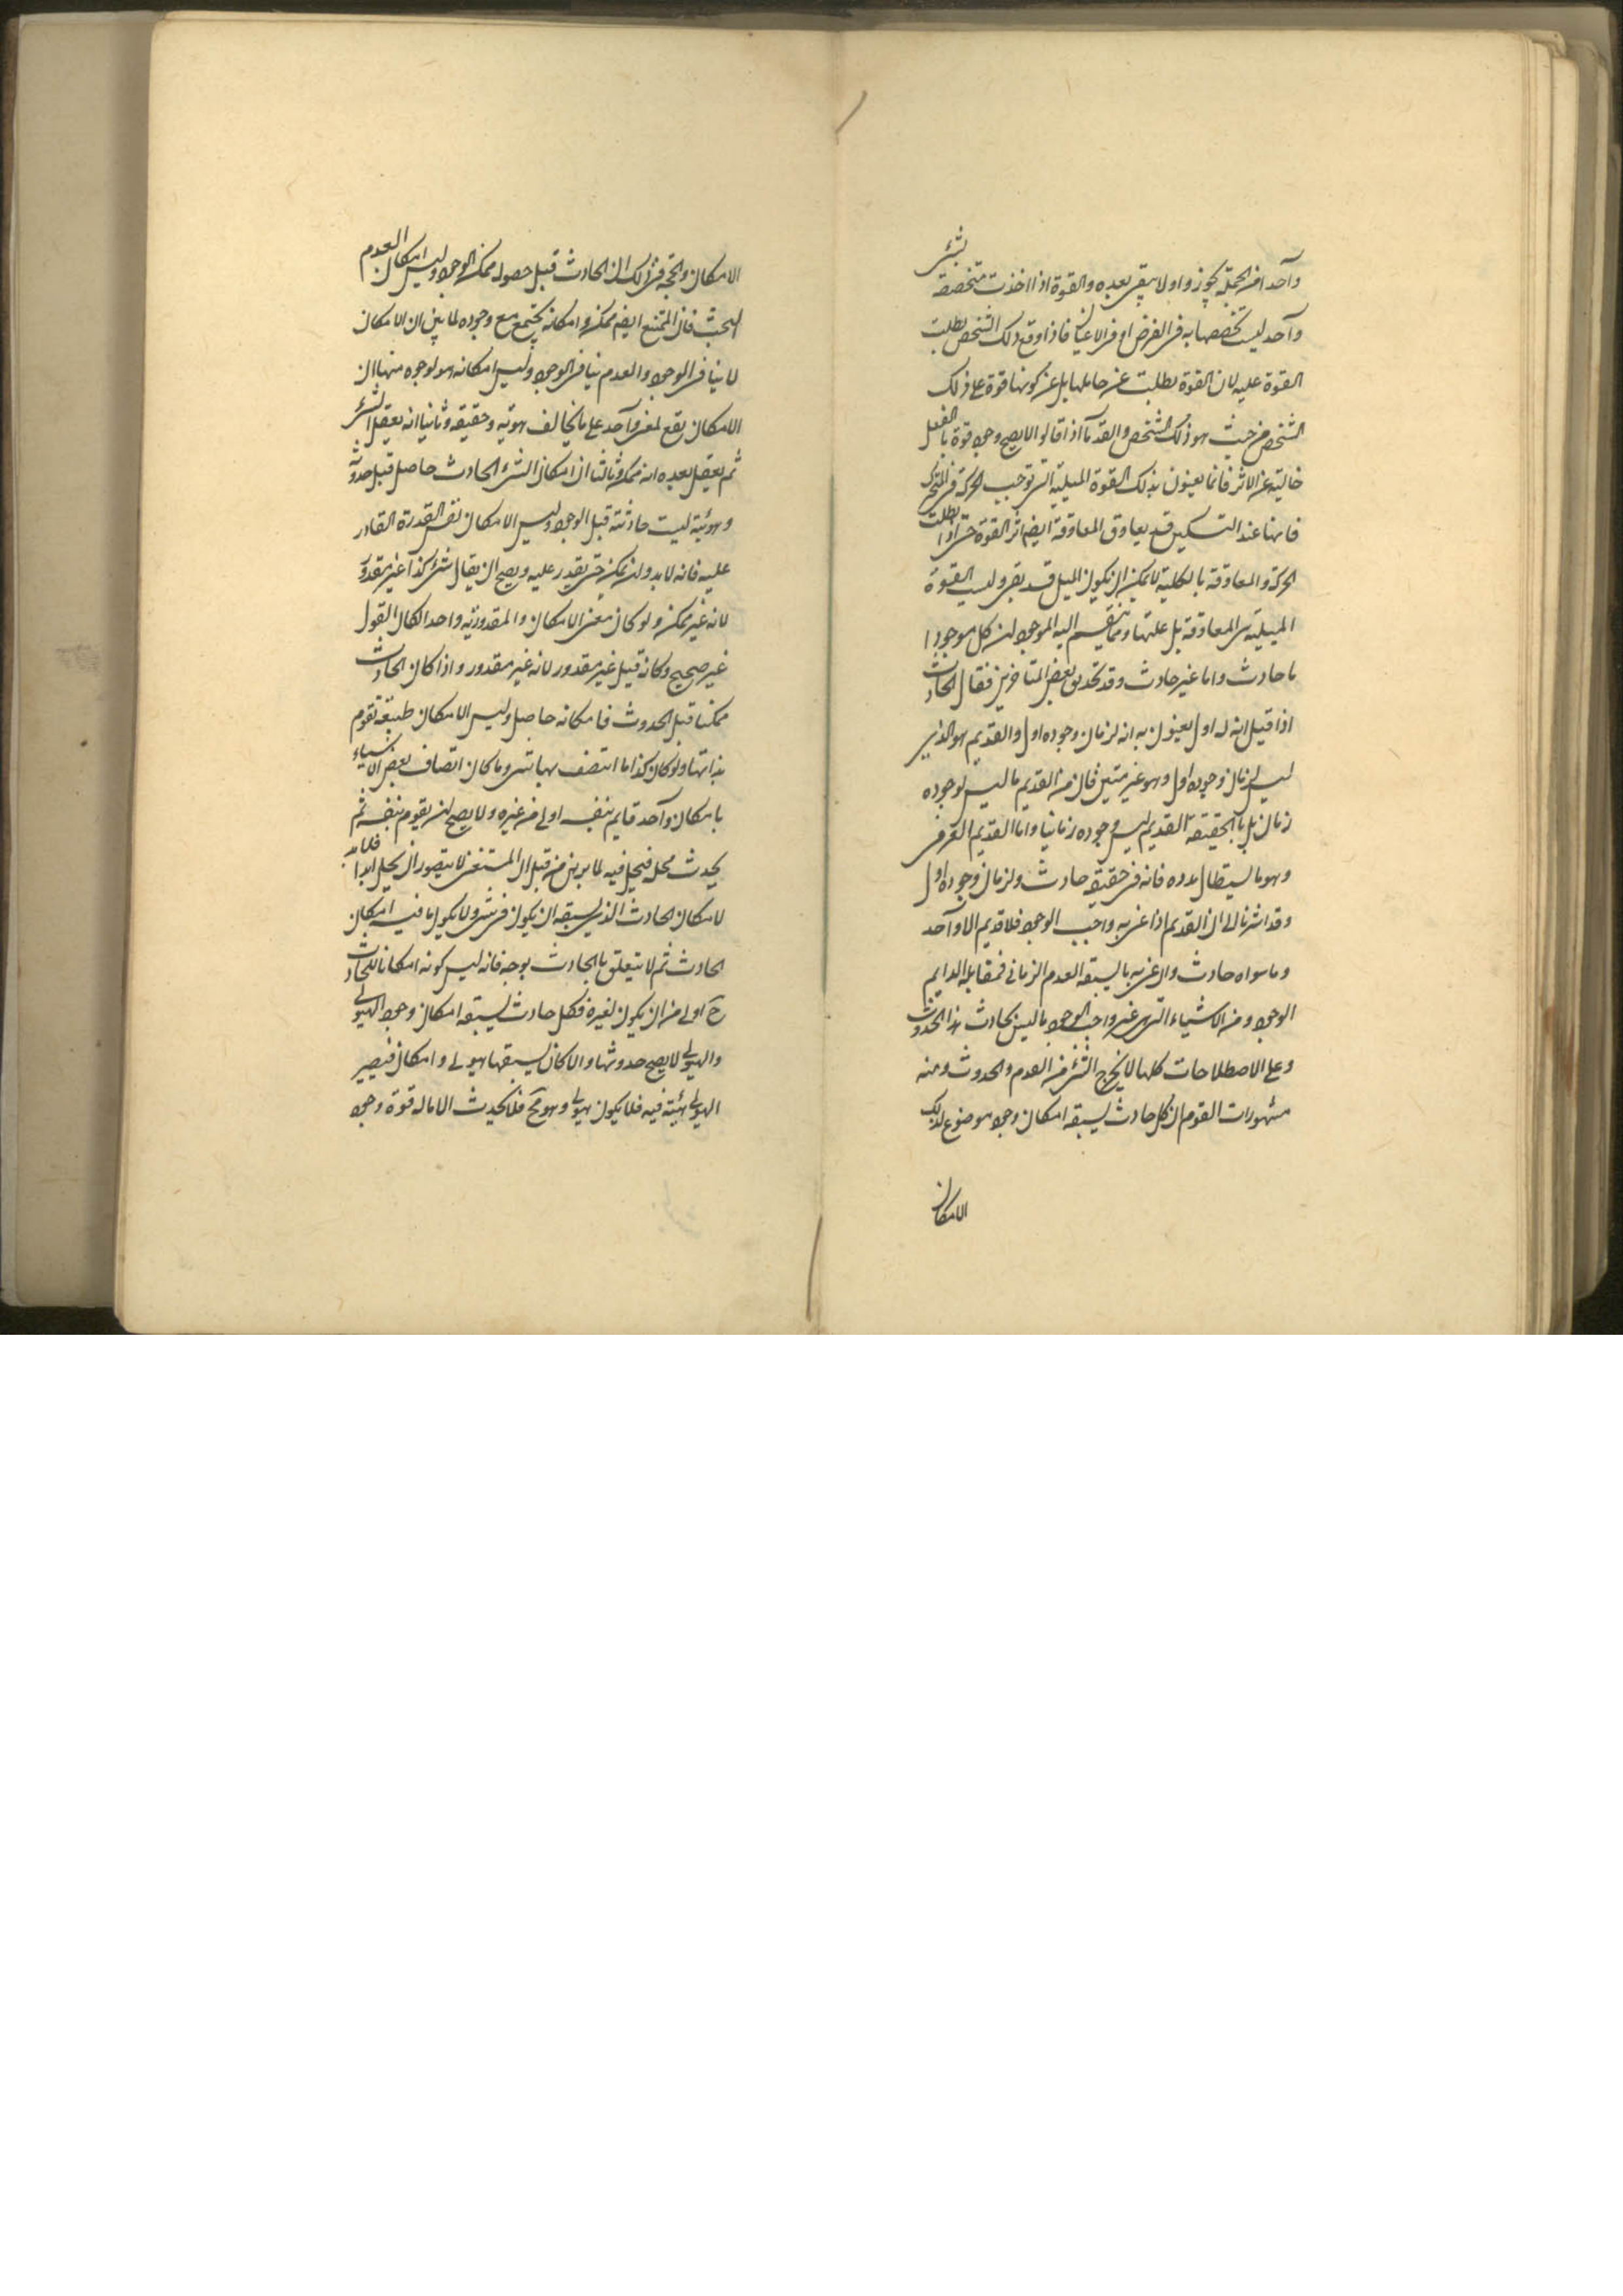 وآحد امن الجملة يجوز واو لا يبقى بعده والقوة اذا اخذت متخصصة بشئ
وآحد ليست تخصصها به فى الفرض او فى الاعيان فاذا وقع ذلك الشخص بطلت
القوة عليه لان القوة بطلت عن حاملها بل عن كونها قوة على ذلك
الشخص من حيث هو ذلك الشخص والقدمآ اذا قالوا لا يصح وجود قوة بالفعل
خالية عن الاثر فانما يعنون بذلك القوة الميلية التى توجب الحركة فى المتحرك
فانها عند التسكين قد يعاوق المعاوقة ايضا اثر القوة حتى اذا بطلت
الحركة والمعاوقة بالكلية لا يمكن ان يكون الميل قد بقى وليست القوة
الميلية هى المعاوقة بل علتها ومما ينقسم اليه الموجود ان كل موجود ا
ما حادث واما غير حادث وقد تحذلق بعض المتاخرين فقال الحادث
اذا قيل انه له اول يعنون به انه لزمان وجوده اول والقديم هو الذى
ليس لزمان وجوده اول وهو غير متين فان من القديم ما ليس لوجوده
زمان بل بالحقيقة القديم ليس وجوده زمانيا واما القديم العرفى
وهو ما يستطال مدده فانه فى حقيقته حادث ولزمان وجوده اول
وقد اشرنا الى ان القديم اذا عنى به واجب الوجود فلا قديم الا وآحد
وما سواه حادث وان عنى به ما لا يسبقه العدم الزمانى فمقابله الدايم
الوجود ومن الاشياء التى هى غير واجب الوجود ما ليس بحادث هذا الحدوث
وعلى الاصطلاحات كلها لا يخرج الشئ من القدم والحدوث ومنه
مشهورات القوم ان كل حادث يسبقه امكان وجود موضوع لذلك
الامكان
الامكان والحجة فى ذلك ان الحادث قبل حصوله ممكن الوجود وليس امكان العدم
البحت فان الممتنع ايضا ممكن و امكانه يجتمع مع وجوده لما بين ان الامكان
لا ينافى الوجود والعدم ينافى الوجود وليس امكانه هو لوجوه منها ان
الامكان يقع لمعنى وآحد على ما يخالف هويته وحقيقته وثانيا انه يعقل الشئ
ثم يعقل بعده انه ممكن وثالثا ان امكان الشئ الحادث حاصل قبل حدوثه
وهويته ليست حادثة قبل الوجود وليس الامكان نفس القدرة القادر
عليه فانه لا بد وان يمكن حتى يقدر عليه ويصح ان يقال شئ كذا غير مقدور
لانه غير ممكن ولو كان معنى الامكان والمقدورية واحدا لكان القول
غير صحيح وكانه قيل غير مقدور لانه غير مقدور واذا كان الحادث
ممكنا قبل الحدوث فامكانه حاصل وليس الامكان طبيعة تقوم
بذاتها ولو كان كذا ما اتصف بها شئ وما كان اتصاف بعض الاشياء
بامكان وآحد قايم بنفسه اولى من غيره ولا يصح ان يقوم بنفسه ثم
يحدث محل فيحل فيه لما برهن من قبل ان المستغنى لا يتصور ان يحل ابدا فلا بد
لامكان الحادث الذى يسبقه ان يكون فى شئ ولا يكون ما فيه امكان
الحادث ثم لا يتعلق بالحادث بوجه فانه ليس كونه امكانا للحادث
ح اولى من ان يكون لغيره فكل حادث يسبقه امكان وجود الهيولى
والهيولى لا يصح حدوثها والا كان يسبقها هيولى وامكان فيصير
الهيولى هيئة فيه فلا يكون هيولى وهو مح فلا يحدث الا ما له قوة وجود